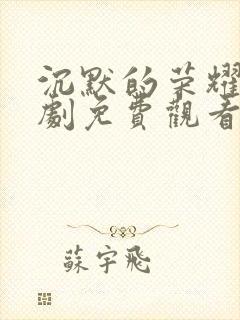 沉默的荣耀
劇免費觀看
蘇宇飛